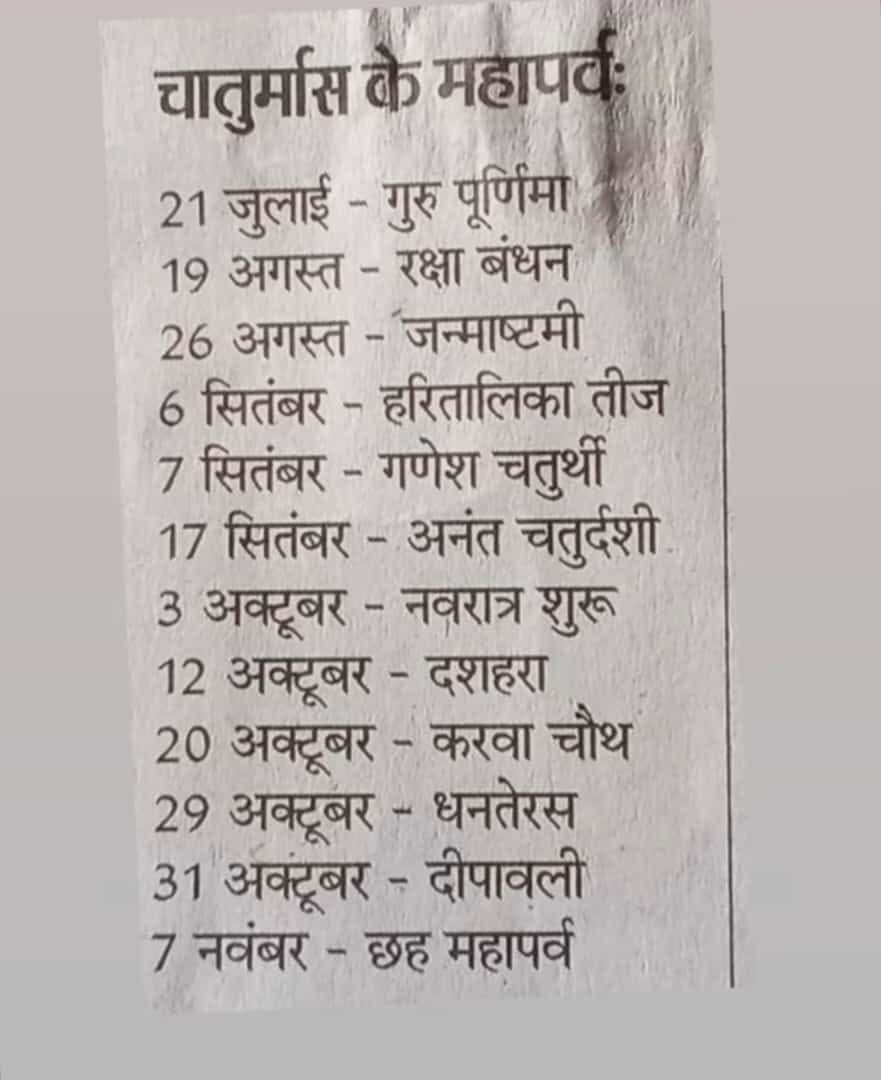 चातुर्मास के महापर्वः
21 जुलाई - गुरु पूर्णिमा
19 अगस्त - रक्षा बंधन
26 अगस्त - जन्माष्टमी
6 सितंबर - हरितालिका तीज
7 सितंबर - गणेश चतुर्थी
17 सितंबर - अनंत चतुर्दशी
3 अक्टूबर - नवरात्र शुरू
12 अक्टूबर - दशहरा
20 अक्टूबर - करवा चौथ
29 अक्टूबर - धनतेरस
31 अक्टूबर - दीपावली
7 नवंबर - छह महापर्व